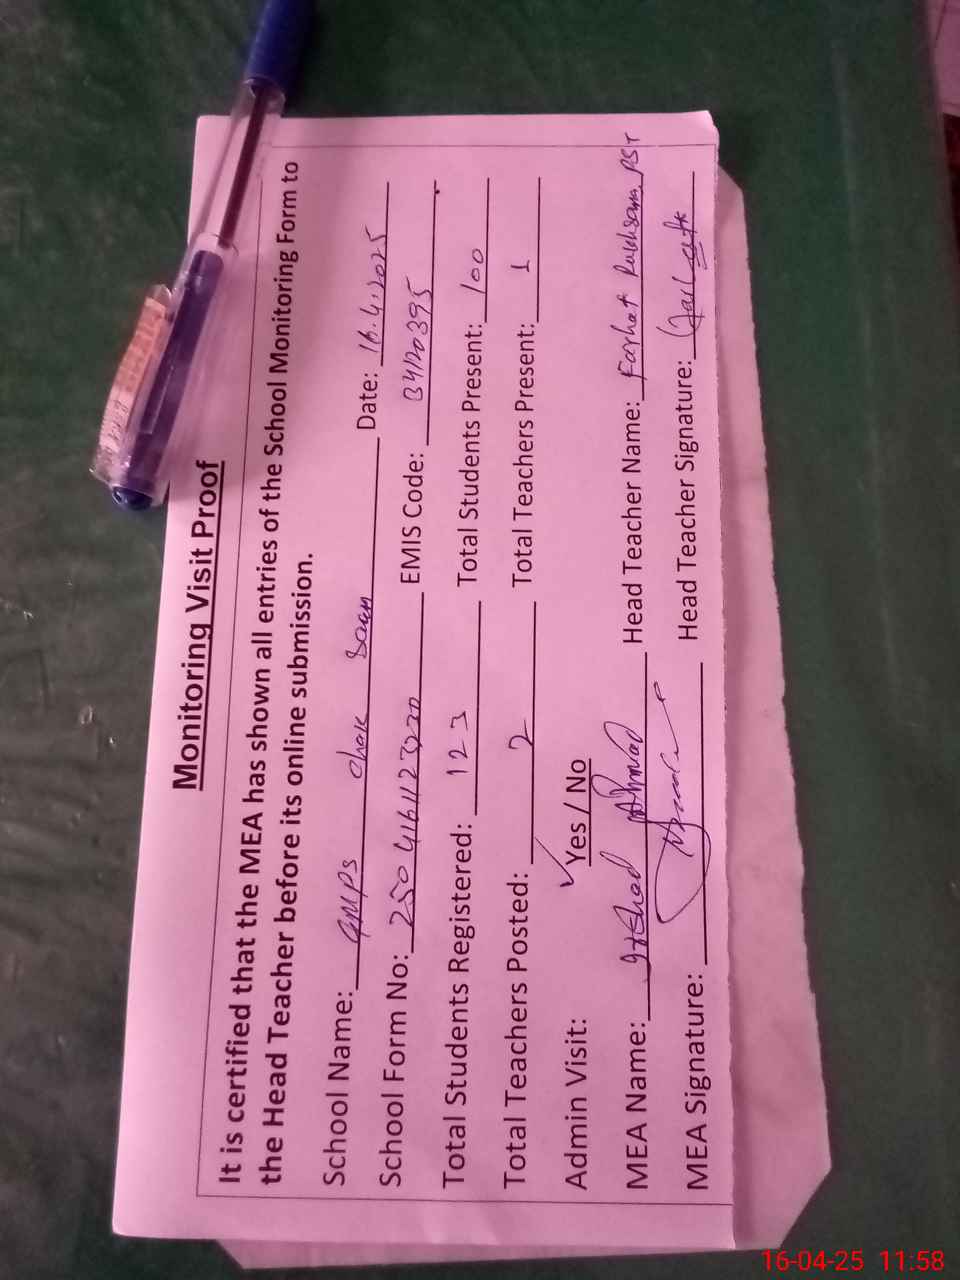 Monitoring Visit Proof
It is certified that the MEA has shown all entries of the School Monitoring Form to
the Head Teacher before its online submission.
School Name: GMPS Chak Date: 16.4.2025
School Form No: EMIS Code: 34120395
Total Students Registered: 123 Total Students Present: 100
Total Teachers Posted: 2 Total Teachers Present: 1
Admin Visit: ✓ Yes / No
MEA Name: Ahmad Head Teacher Name: Farhat Rukhsana PST
MEA Signature: Head Teacher Signature:
16-04-25 11:58